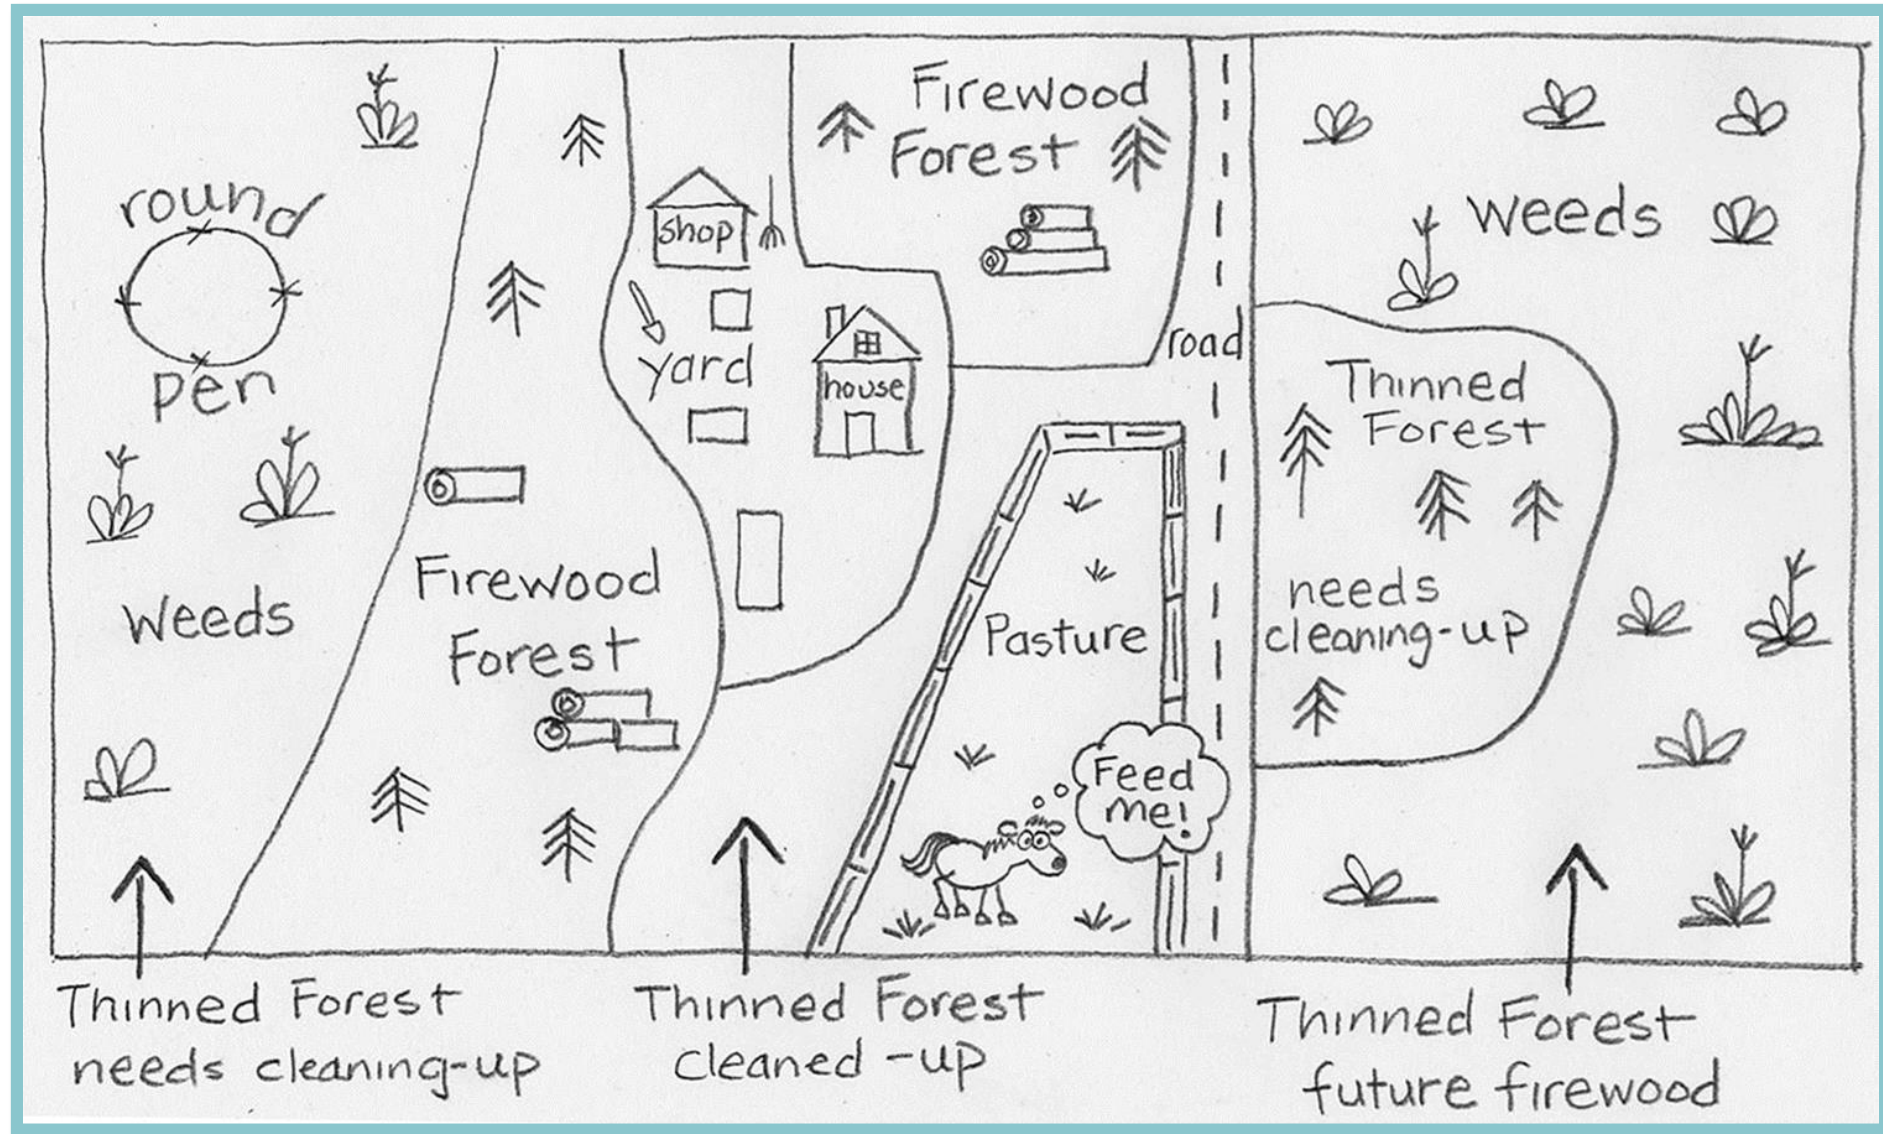 round
pen
weeds
Firewood
Forest
shop
yard
house
Firewood
Forest
road
Pasture
Feed
me!
weeds
Thinned
Forest
needs
cleaning-up
Thinned Forest
needs cleaning-up
Thinned Forest
cleaned-up
Thinned Forest
future firewood